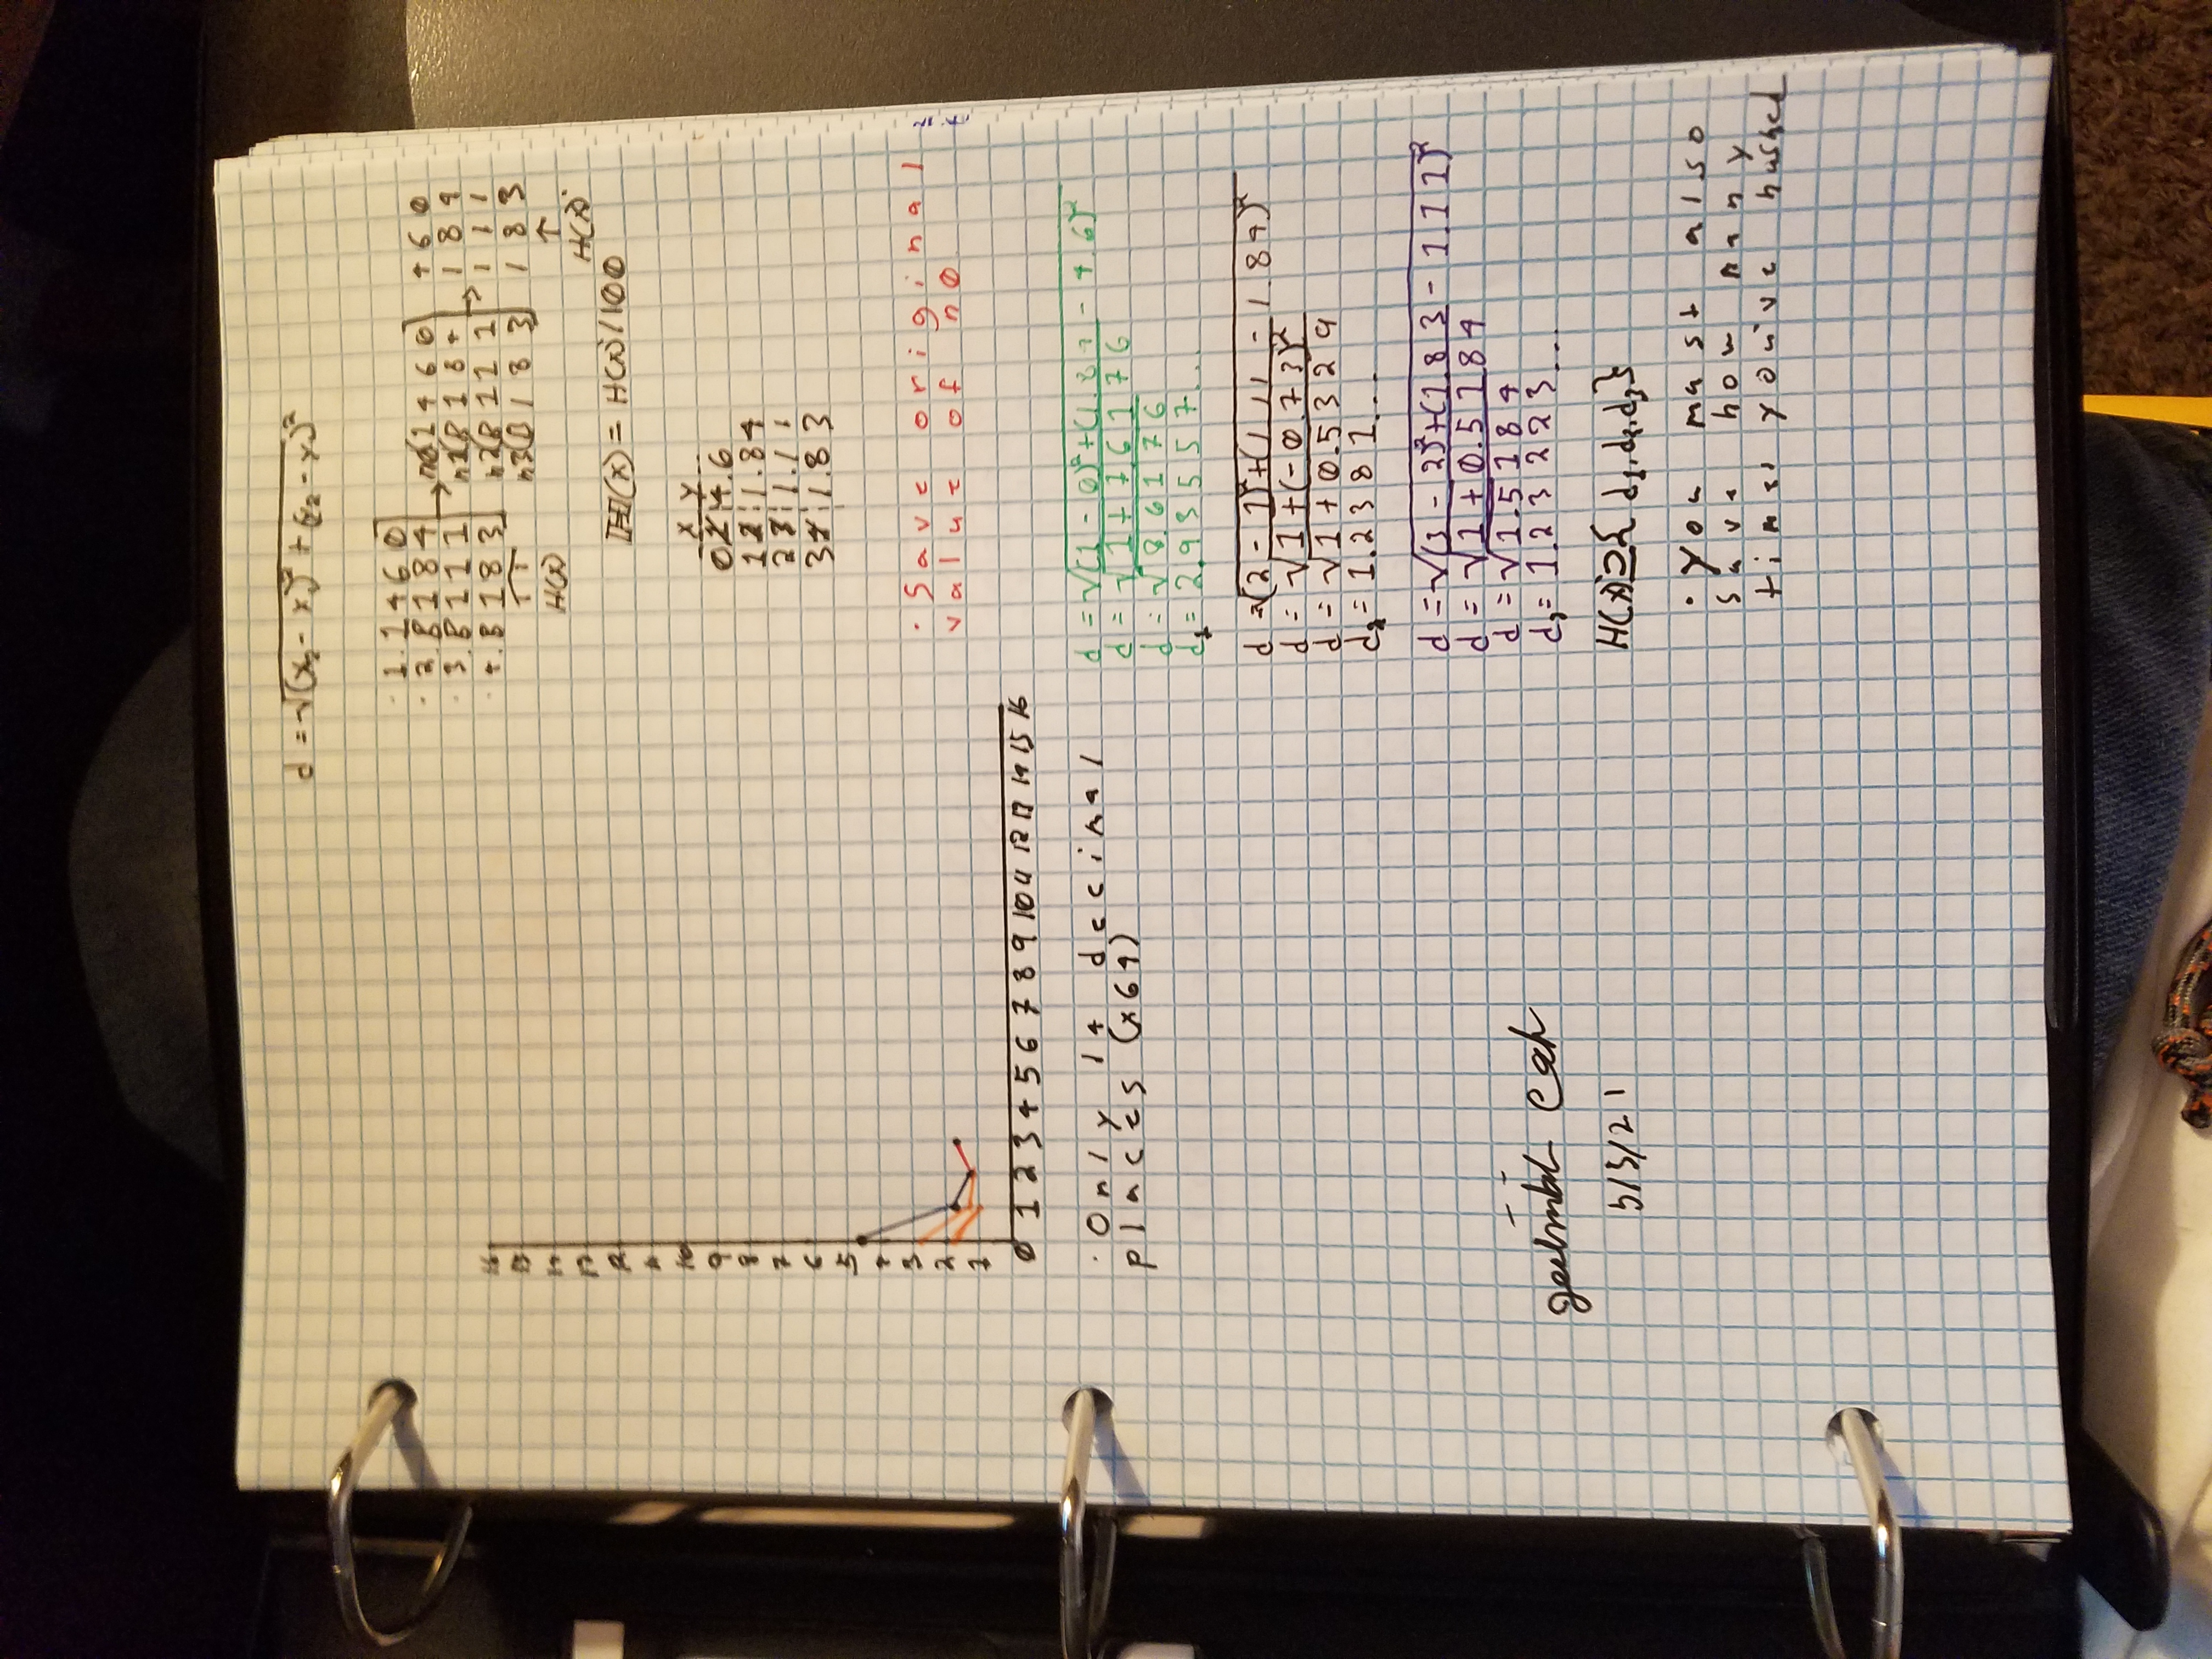 d = √(x₂ - x₁)² + (y₂ - y₁)²
1. 1 4 6 0
2. 8 1 8 4
3. 8 1 1 1
4. 8 1 8 3
H(x)
→ n0(1 4 6 0
n1(8 1 8 4
n2(8 1 1 1
n3(8 1 8 3
→ 4 6 0
1 8 4
1 1 1
1 8 3
↑
H(x)'
ℍ(x) = H(x)'/100
x y
0 4.6
1 1.84
2 1.11
3 1.83
16
15
14
13
12
11
10
9
8
7
6
5
4
3
2
1
0 1 2 3 4 5 6 7 8 9 10 11 12 13 14 15 16
· Save original
value of n0
· Only 14 decimal
places (x64)
d = √(1 - 0)² + (1.84 - 4.6)²
d = √1 + 7.6176
d = √8.6176
d₁ = 2.93557...
d = √(2 - 1)² + (1.11 - 1.84)²
d = √1 + (-0.73)²
d = √1 + 0.5329
d₂ = 1.2381...
d = √(3 - 2)² + (1.83 - 1.11)²
d = √1 + 0.5184
d = √1.5184
d₃ = 1.23223...
H(x)' ⊇ { d₁, d₂, d₃}
5/5/21
· you must also
save how many
times you've hashed